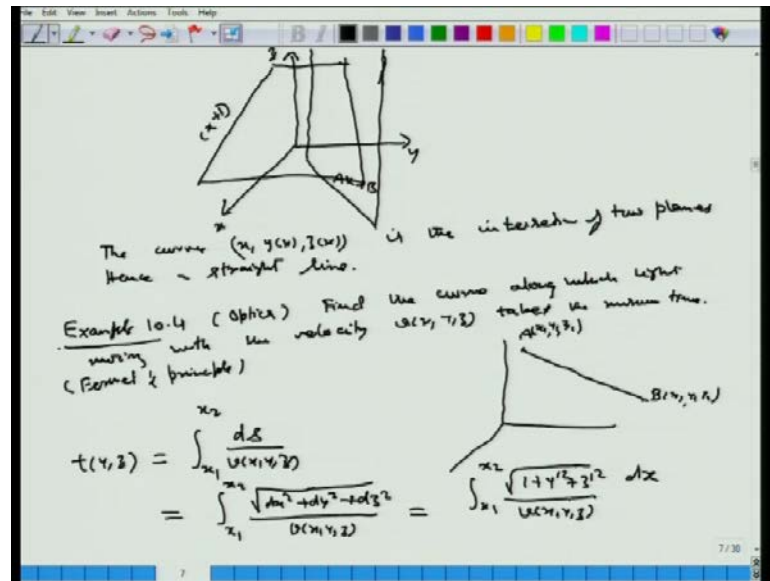 File Edit View Insert Actions Tools Help
z
(x+1)
y
A B
x
The curve (x, y(x), z(x)) is the intersection of two planes
Hence a straight line.
Example 10.4 (Optics) Find the curve along which light
moving with the velocity v(x, y, z) takes the minimum time.
(Fermat's principle)
A(x₁, y₁, z₁)
t(y, z) = ∫_{x₁}^{x₂} ds / v(x, y, z)
= ∫_{x₁}^{x₂} √(dx² + dy² + dz²) / v(x, y, z) = ∫_{x₁}^{x₂} √(1 + y'² + z'²) / v(x, y, z) dx
7/30
7